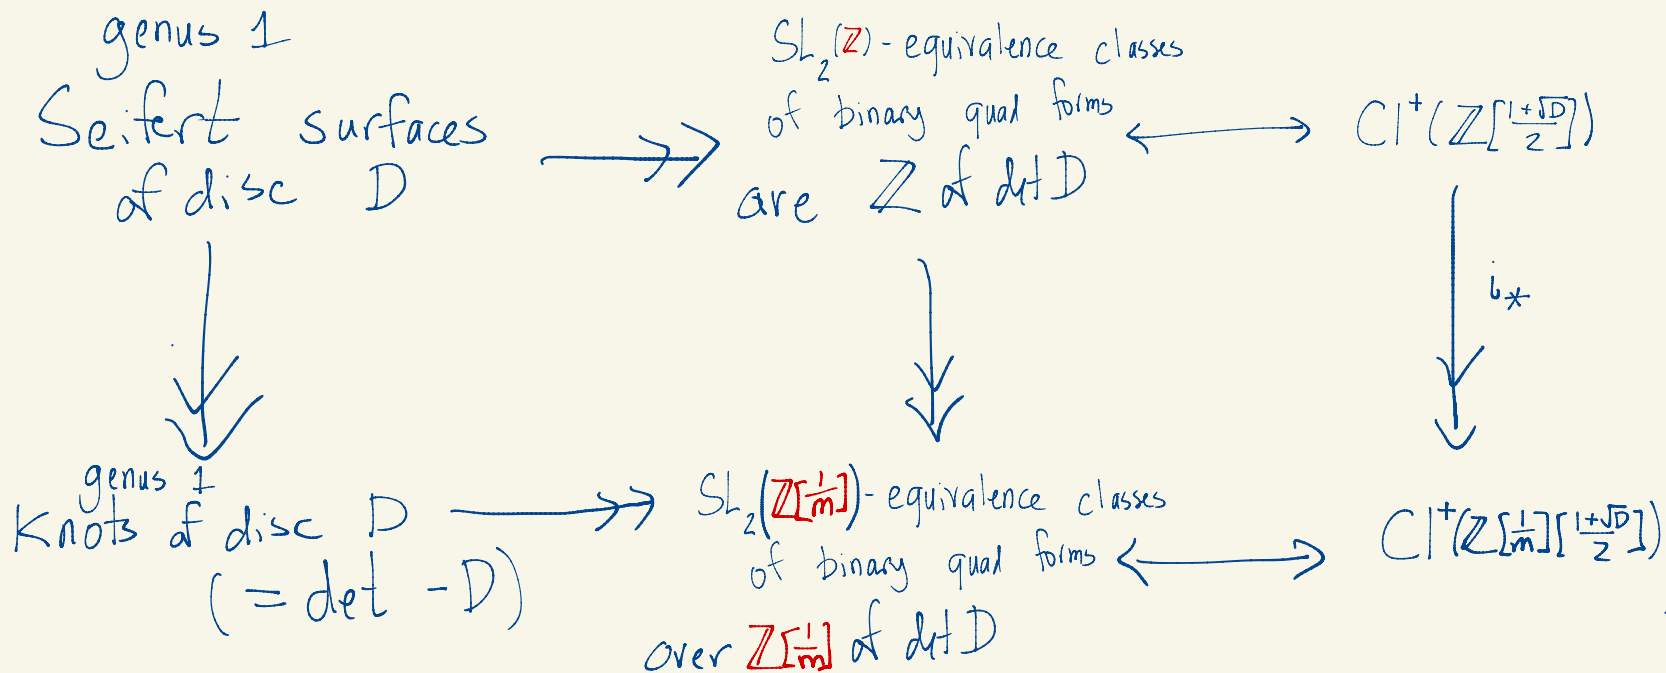 genus 1
Seifert surfaces
of disc D
SL₂(ℤ)-equivalence classes
of binary quad forms
are ℤ of det D
Cl⁺(ℤ[(1+√D)/2])
i_*
genus 1
Knots of disc D
(= det -D)
SL₂(ℤ[1/m])-equivalence classes
of binary quad forms
over ℤ[1/m] of det D
Cl⁺(ℤ[1/m][(1+√D)/2])